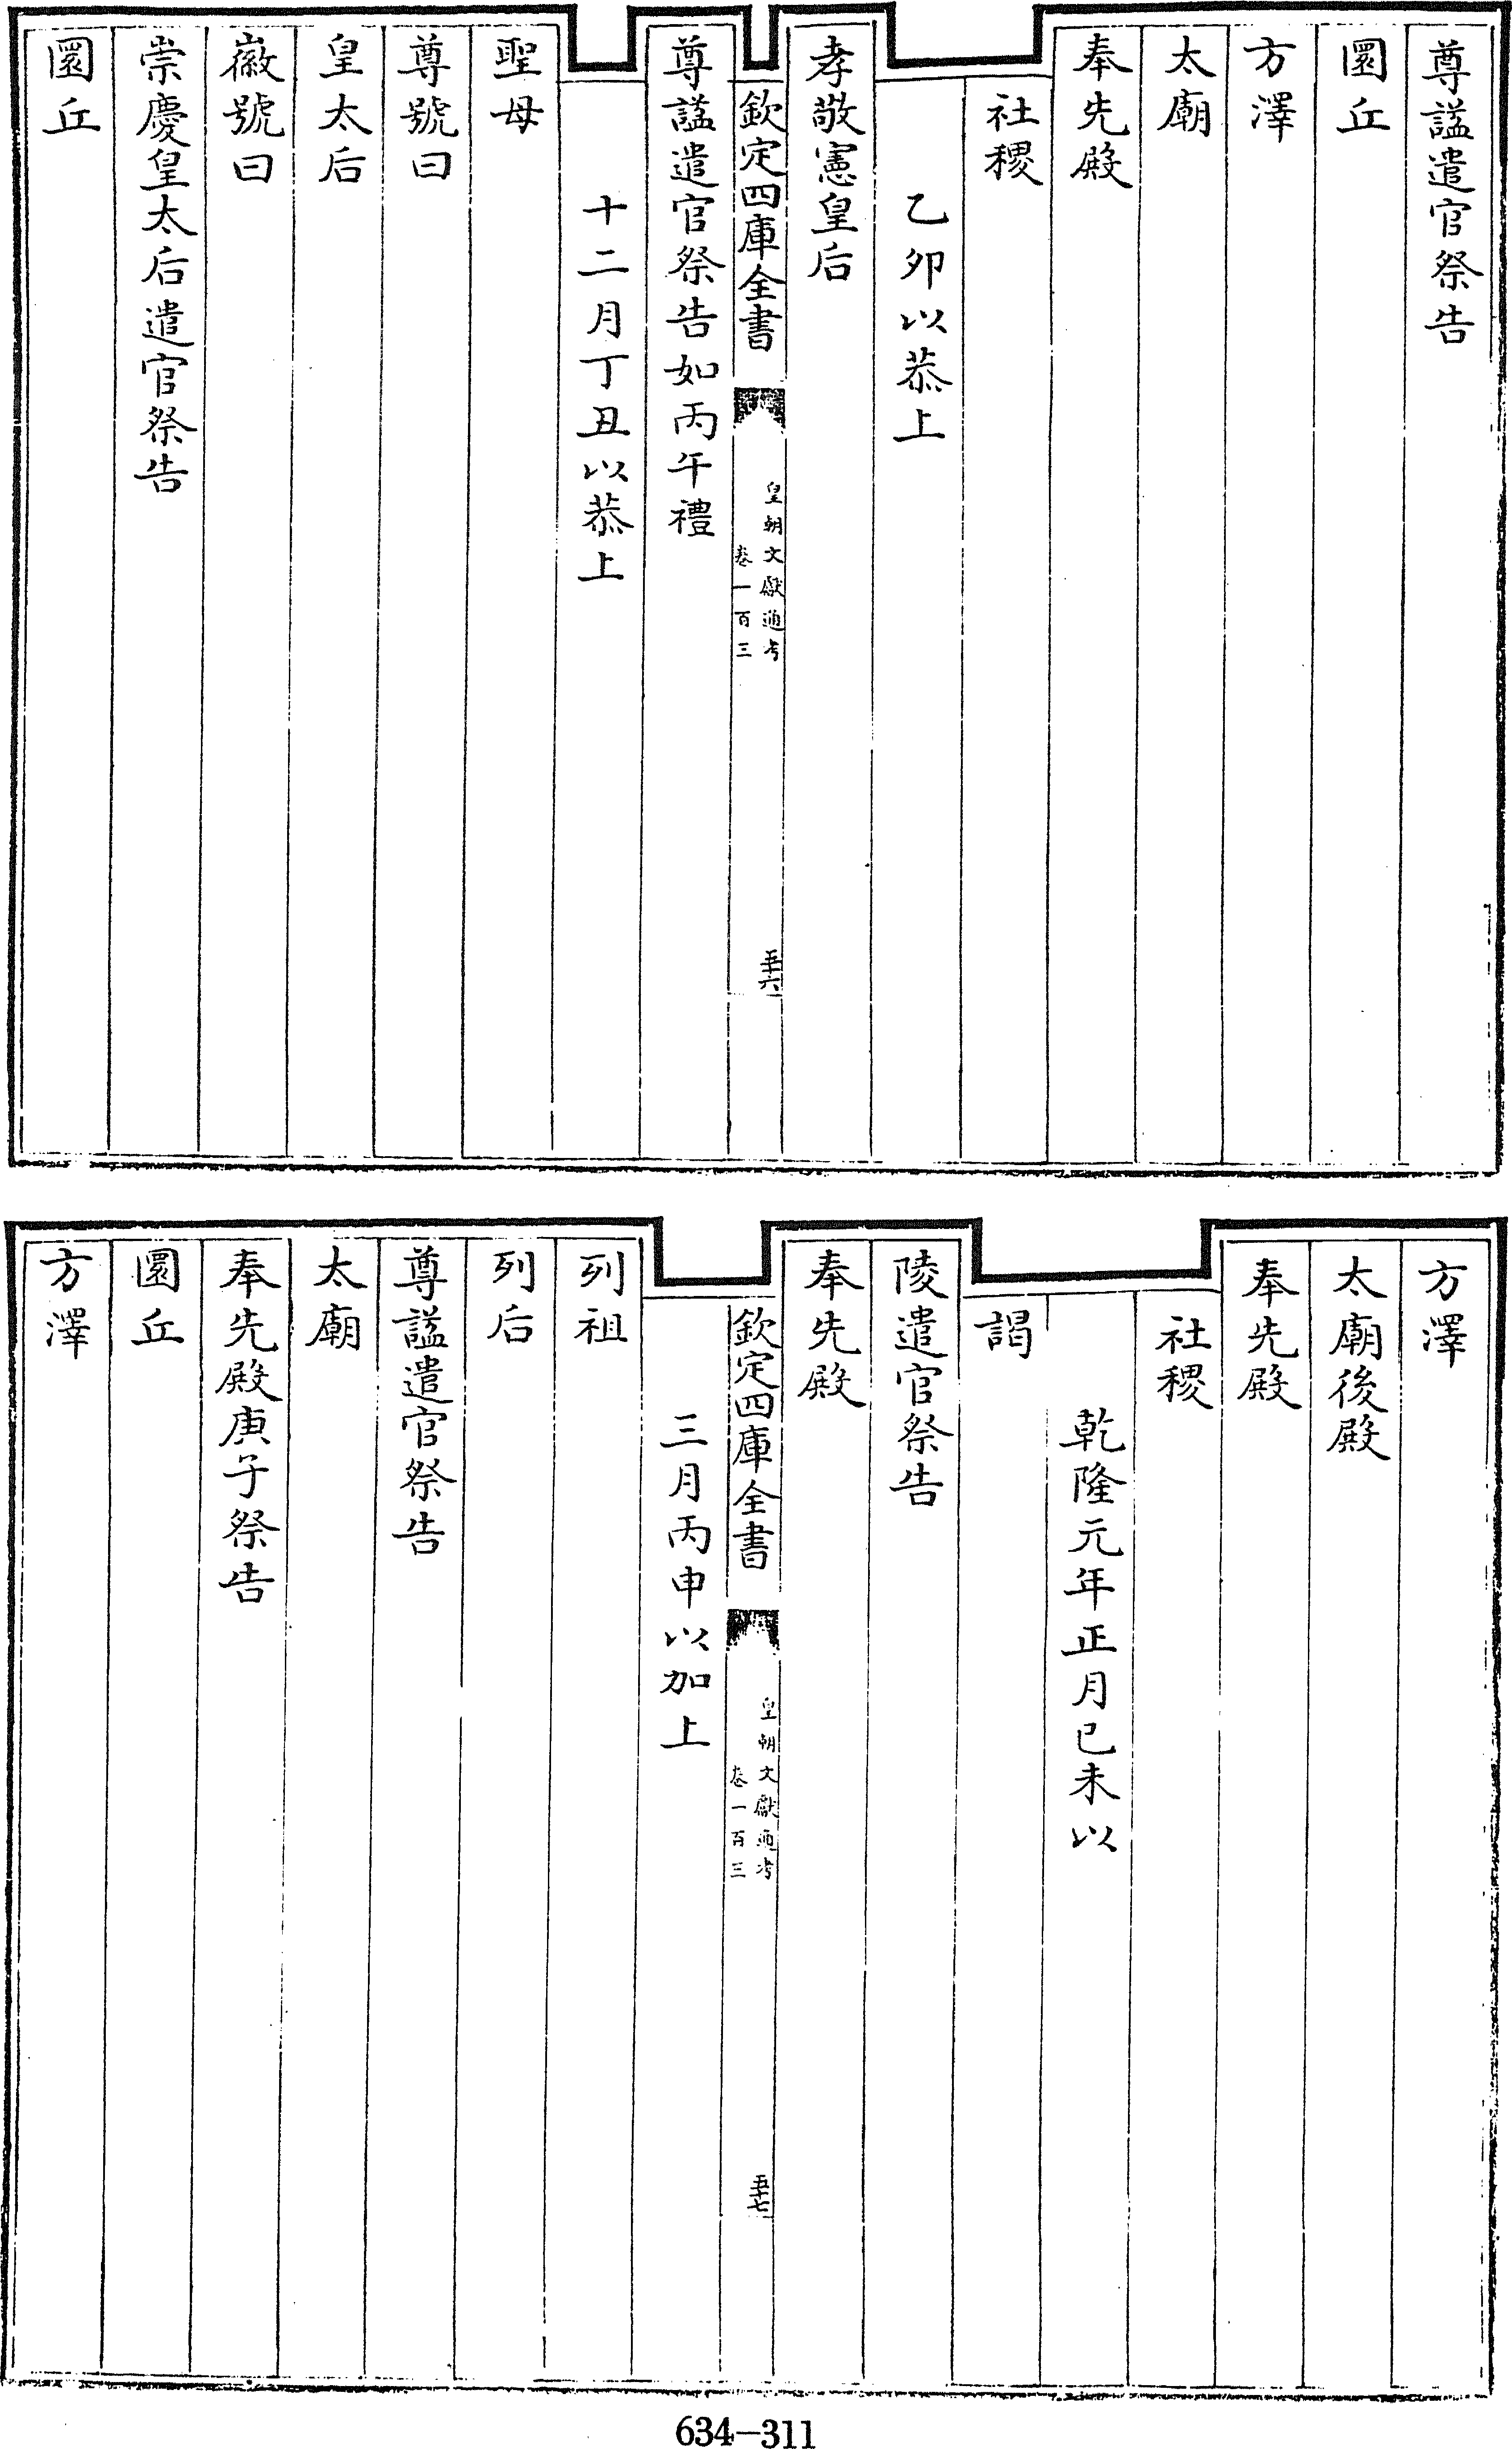 尊諡遣官祭告
圜丘
方澤
太廟
奉先殿
社稷
乙夘以恭上
孝敬憲皇后
欽定四庫全書
皇朝文獻通考
卷一百三
五十六
尊諡遣官祭告如丙午禮
十二月丁丑以恭上
聖母
尊號曰
皇太后
徽號曰
崇慶皇太后遣官祭告
圜丘
方澤
太廟後殿
奉先殿
社稷
乾隆元年正月己未以
謁
陵遣官祭告
奉先殿
欽定四庫全書
皇朝文獻通考
卷一百三
五十七
三月丙申以加上
列祖
列后
尊諡遣官祭告
太廟
奉先殿庚子祭告
圜丘
方澤
634-311